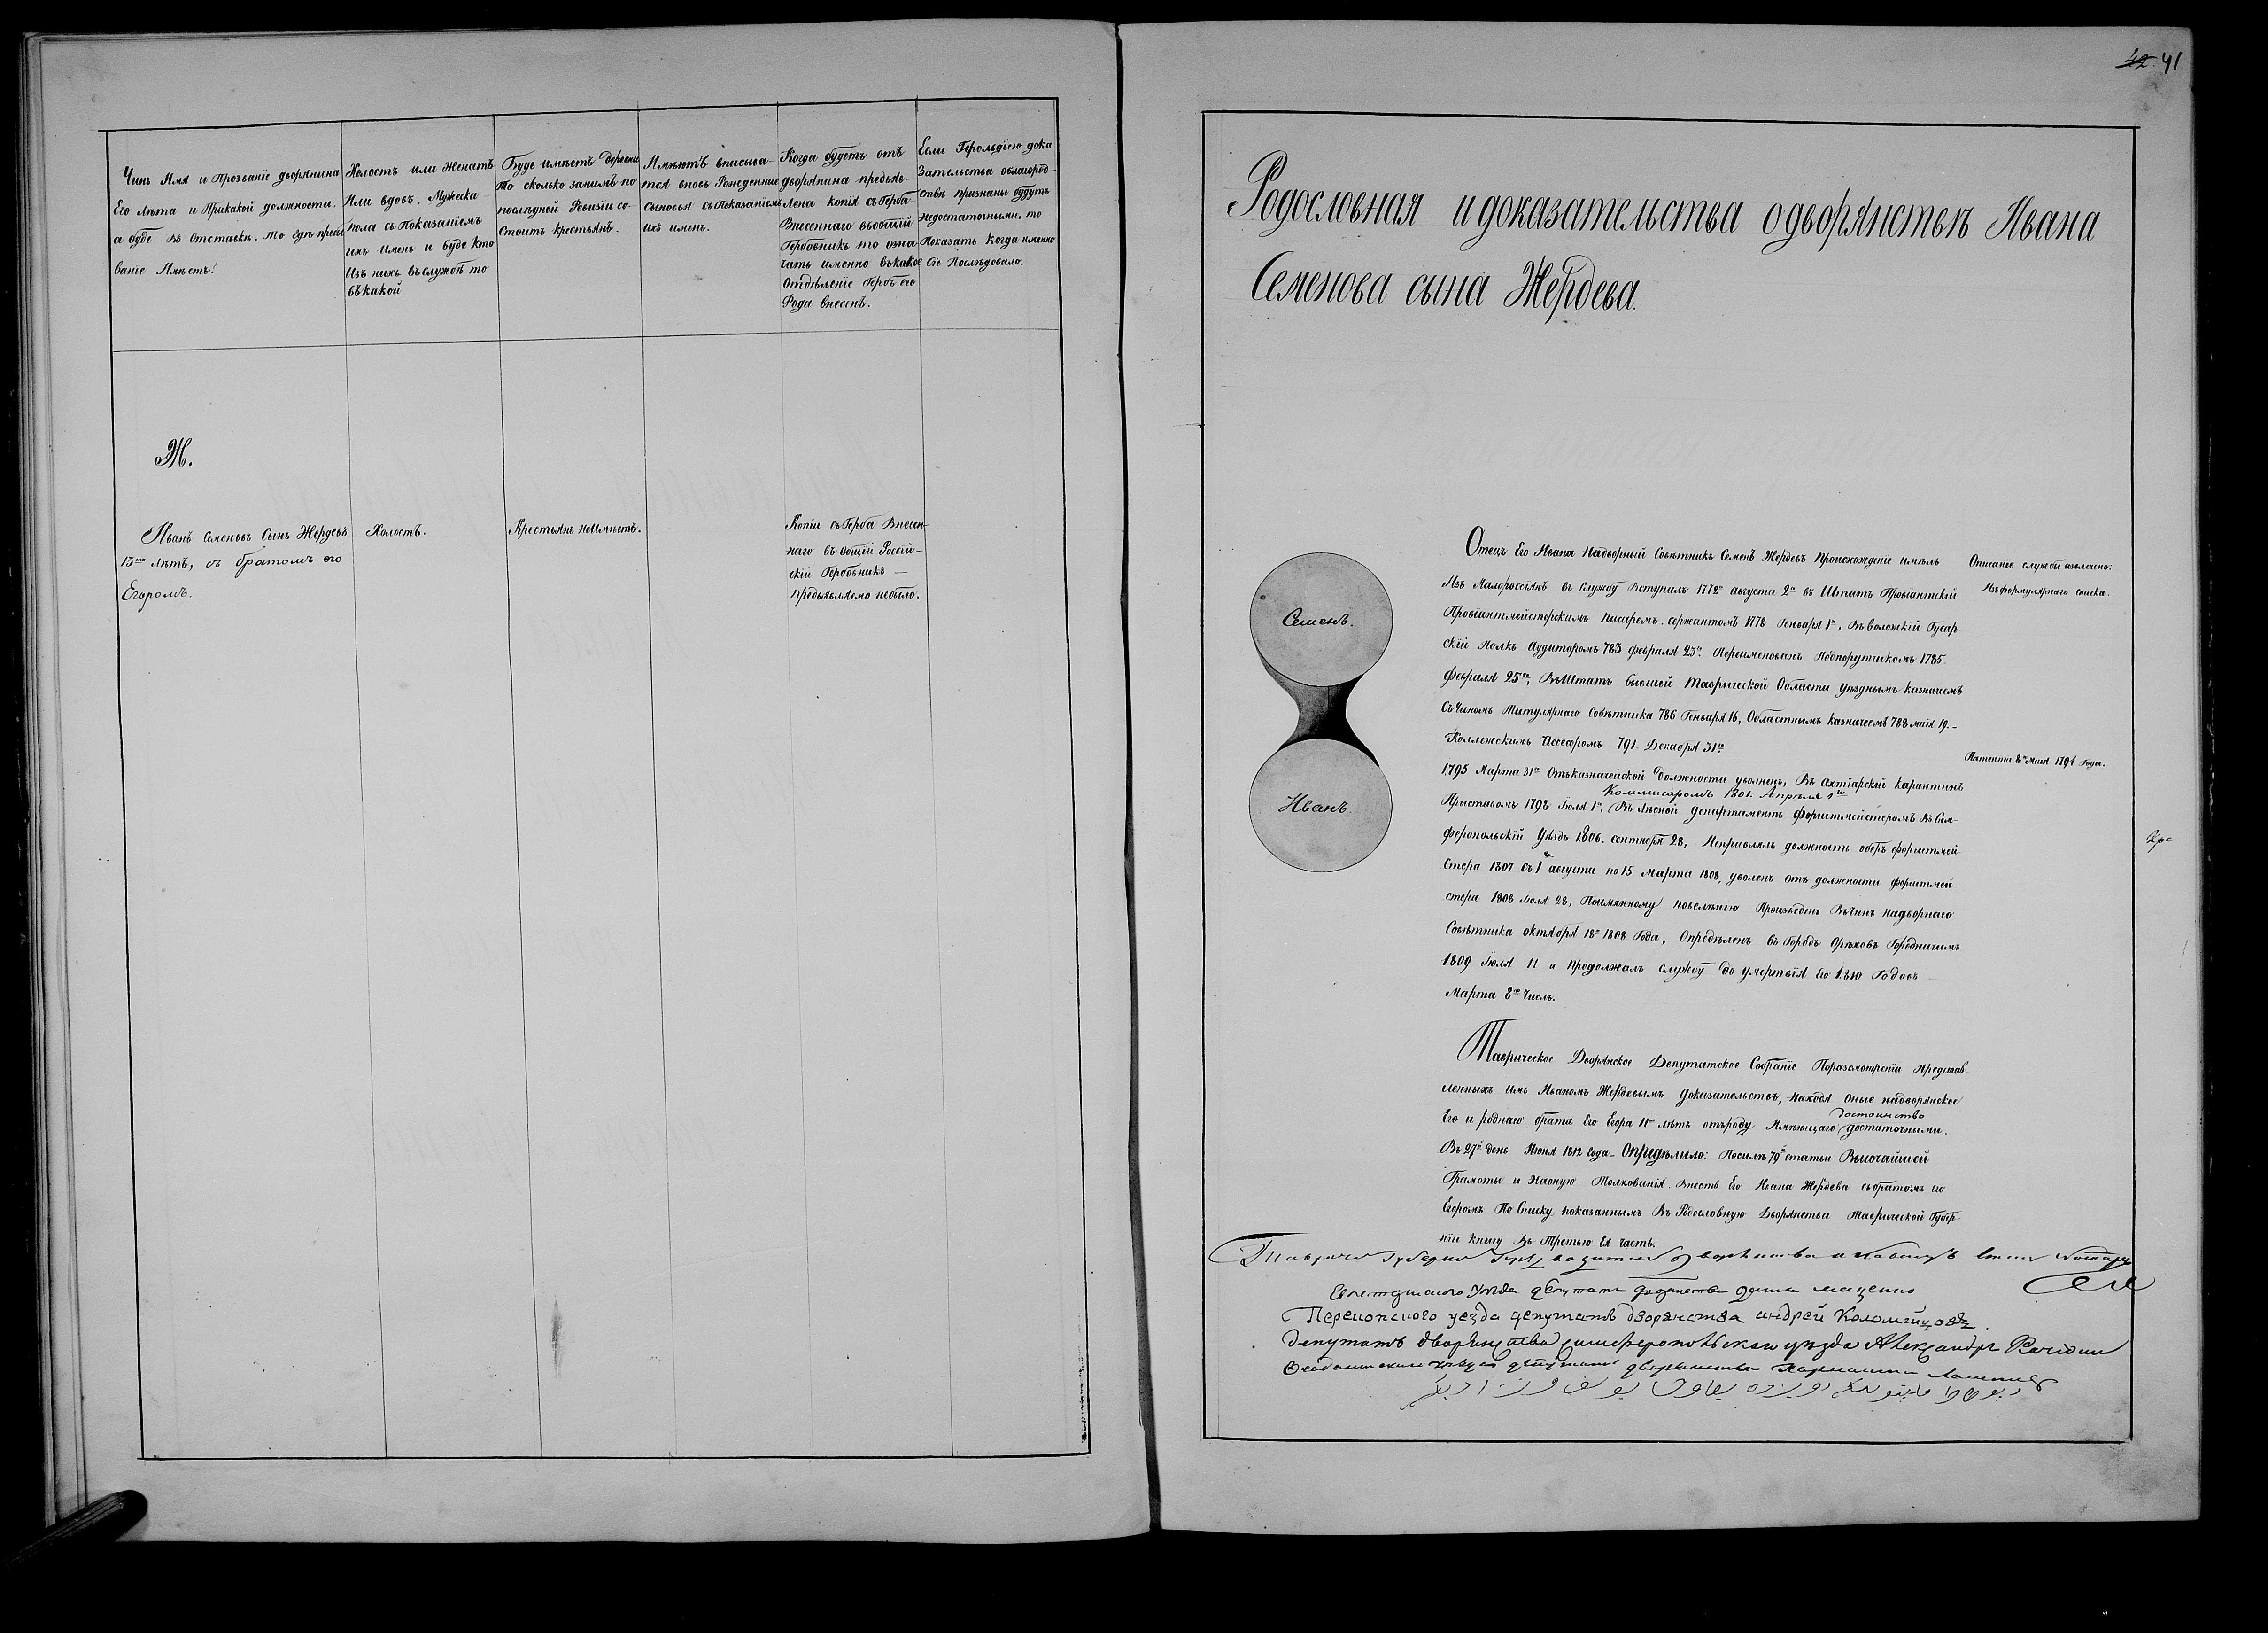 42. 41
Чинъ Имя и Прозваніе дворянина
Его лѣта и Прикакой должности.
а буде въ Отставкѣ, то гдѣ пребы
ваніе Имѣетъ!
Холостъ или Женатъ
Или вдовъ. Мужеска
пола съ Показаніемъ
ихъ имянъ и буде кто
Изъ нихъ въслужбѣ то
въкакой
Буде имѣетъ деревни
То сколько занимъ по
послѣдней Ревизіи со-
стоитъ крестьянъ.
Имѣютъ вписыва-
тся вновь Рожденные
Сыновья съПоказаніемъ
ихъ именъ.
Когда будетъ отъ
дворянина предъяв-
лена копія съГерба
Внесеннаго вьобщій
Гербовникъ то озна-
чать именно вькакое
Отдѣленіе Гербъ его
Рода внесенъ.
Если Герольдіею дока
зательства облагород-
ствѣ признаны будутъ
недостаточными, то
Показать Когда именно
Сіе Послѣдовало.
Ж.
Иванъ Семеновъ Сынъ Жердевъ
13 лѣтъ, съ братомъ его
Егоромъ.
Холостъ.
Крестьянъ неИмѣетъ.
Копіи съГерба Внесен-
наго въ Общій Россій-
скій Гербовникъ —
предъявлено небыло.
Родословная и доказательства одворянствѣ Ивана
Семенова сына Жердева.
Семенъ.
Иванъ.
Отецъ Его Ивана Надворный Совѣтникъ Семенъ Жердевъ Происхожденіе имѣлъ
Изъ Малороссіянъ въ Службу Вступилъ 1772 августа 2 въ Штатъ Провіантскій
Провіантмейстерскимъ писаремъ. сержантомъ 1778 Генваря 1, Въволожскій Гусар-
скій Полкъ Аудиторомъ 783 февраля 23. Переименованъ Подпорутчикомъ 1785.
февраля 25, ВъШтатъ бывшей Таврической Области уѣзднымъ казначеемъ
СъЧиномъ Титулярнаго Совѣтника 786 Генваря 16, Областнымъ казначеемъ 788 маія 19.-
Коллежскимъ Ассесоромъ 791. Декабря 31
1795 Марта 31 Отъказначейской Должности уволенъ, Въ Ахтіарскій карантинъ
Коммисаромъ 1801. Апрѣля 1
Приставомъ 1798 Іюля 1, Въ лѣсной департаментъ форштмейстеромъ въ Сим-
феропольскій Уѣздъ 1806. сентября 28, Исправлялъ должность оберъ форштмей-
стера 1807 съ 1 августа по 15 Марта 1808, уволенъ отъ должности форштмей-
стера 1808 Іюля 28, Поимянному повелѣнію Произведенъ ВъЧинъ надворнаго
Совѣтника октября 18 1808 Года, Опредѣленъ въ Городъ Орѣховъ Городничимъ
1809 Іюля 11 и продолжалъ службу до умертвія Его 1810 Годовъ
Марта 8 Числъ.
Описаніе службы извлечено:
Изъформулярнаго списка.
Патента 8 Маія 1794 года.
Таврическое Дворянское Депутатское Собраніе Поразсмотреніи Представ
ленныхъ имъ Иваномъ Жердевымъ Доказательствъ, находя оные надворянское
достоинство
Его и роднаго брата Его Егора 11 лѣтъ отъроду Имѣющаго достаточными.
Въ 27 день Июня 1812 года - Опредѣлило: Посилѣ 79 статьи Высочайшей
Грамоты и Наоную Толкованія. Внесть Его Ивана Жердева събратомъ его
Егоромъ По Списку показаннымъ Въ Родословную Дворянства Таврической Губер-
ніи книгу Въ Третью Ея часть.
уѣзда депутатъ
Перекопского уезда депутатъ дворянства андрей Коломийцовъ.
Депутатъ дворянства симферопольскаго уѣзда Александръ
депутатъ дворянства